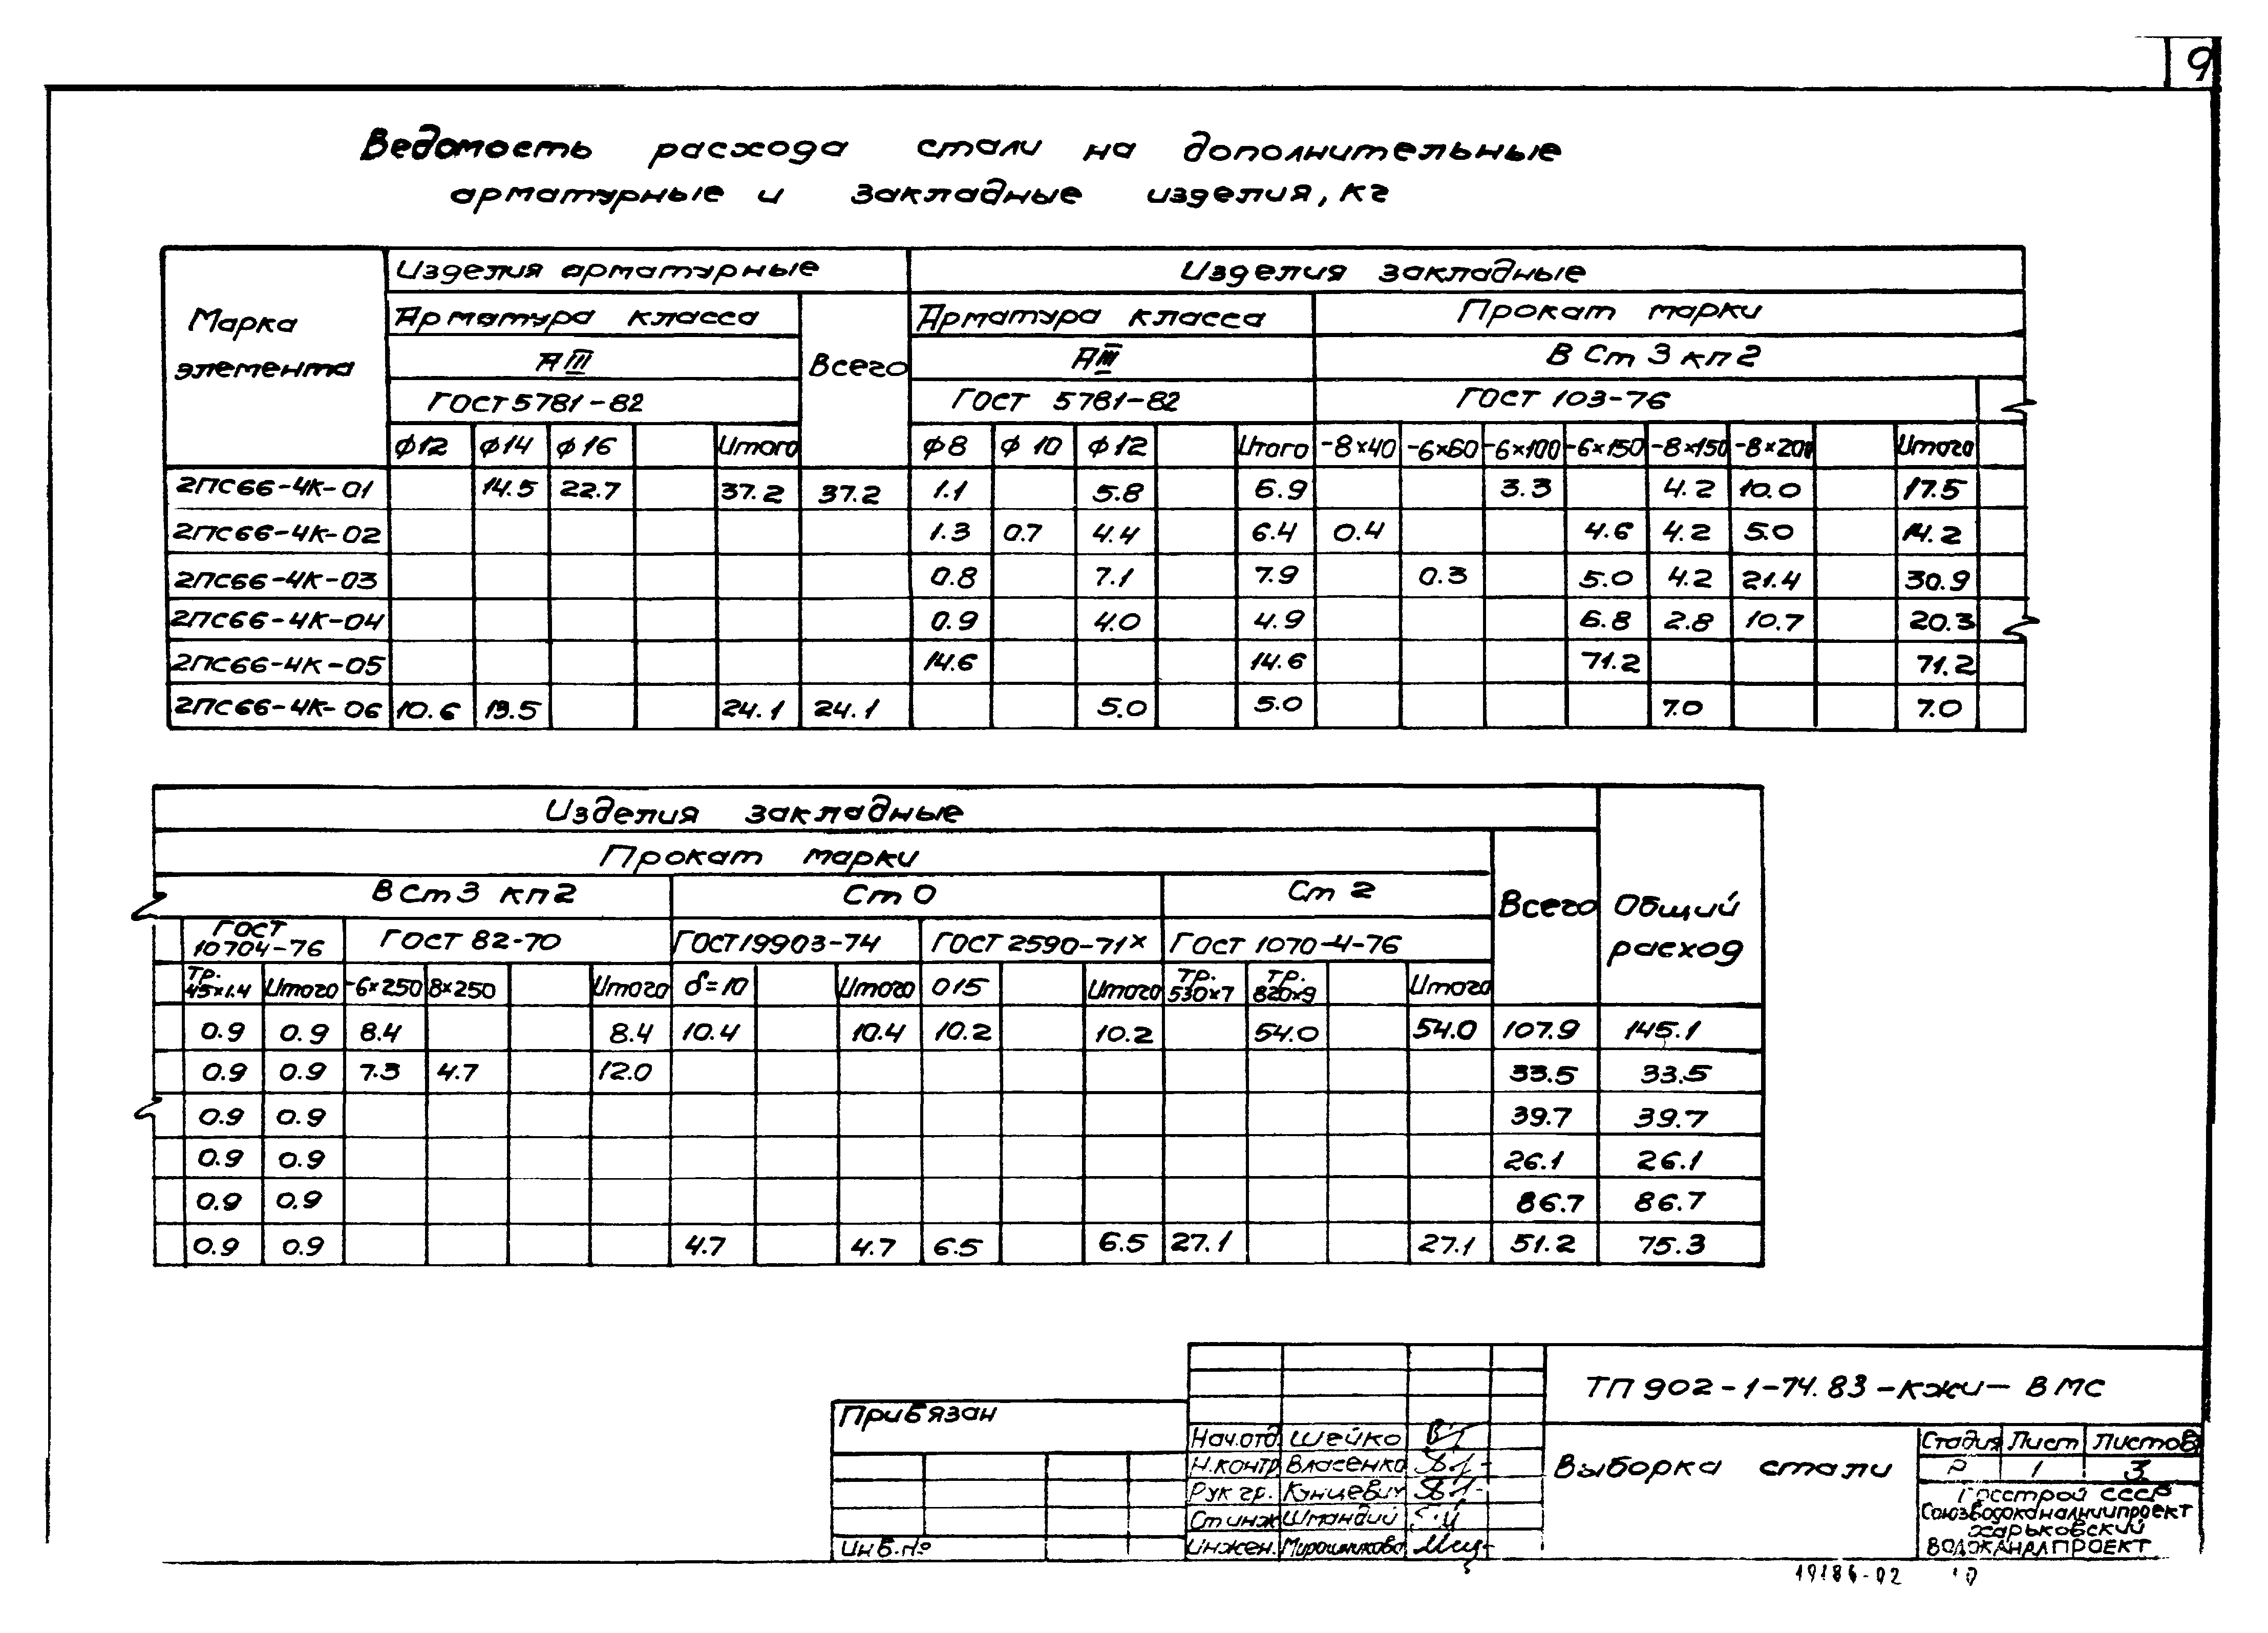 9
Ведомость расхода стали на дополнительные
арматурные и закладные изделия, кг
Марка элемента
Изделия арматурные Изделия закладные
Арматура класса Всего Арматура класса Прокат марки
АIII АIII ВСт3кп2
ГОСТ 5781-82 ГОСТ 5781-82 ГОСТ 103-76
ф12 ф14 ф16 Итого ф8 ф10 ф12 Итого -8×40 -6×60 -6×100 -6×150 -8×150 -8×200 Итого
2ПС66-4К-01 14.5 22.7 37.2 37.2 1.1 5.8 6.9 3.3 4.2 10.0 17.5
2ПС66-4К-02 1.3 0.7 4.4 6.4 0.4 4.6 4.2 5.0 14.2
2ПС66-4К-03 0.8 7.1 7.9 0.3 5.0 4.2 21.4 30.9
2ПС66-4К-04 0.9 4.0 4.9 6.8 2.8 10.7 20.3
2ПС66-4К-05 14.6 14.6 71.2 71.2
2ПС66-4К-06 10.6 13.5 24.1 24.1 5.0 5.0 7.0 7.0
Изделия закладные
Прокат марки
ВСт3 кп2 Ст0 Ст2 Всего Общий расход
ГОСТ 10704-76 ГОСТ 82-70 ГОСТ19903-74 ГОСТ 2590-71× ГОСТ 1070-4-76
Тр. 45×1.4 Итого -6×250 8×250 Итого δ=10 Итого О15 Итого Тр. 530×7 Тр. 820×9 Итого
0.9 0.9 8.4 8.4 10.4 10.4 10.2 10.2 54.0 54.0 107.9 145.1
0.9 0.9 7.3 4.7 12.0 33.5 33.5
0.9 0.9 39.7 39.7
0.9 0.9 26.1 26.1
0.9 0.9 86.7 86.7
0.9 0.9 4.7 4.7 6.5 6.5 27.1 27.1 51.2 75.3
ТП 902-1-74.83-КЖИ-ВМС
Привязан
Инв.№
Нач.отд Шейко
Н.контр Власенко
Рук гр. Кунцевич
Ст инж Шмандий
Инжен. Мирошникова
Выборка стали
Стадия Лист Листов
Р 1 3
Госстрой СССР
Союзводоканалниипроект
Харьковский
Водоканалпроект
19186-02 10